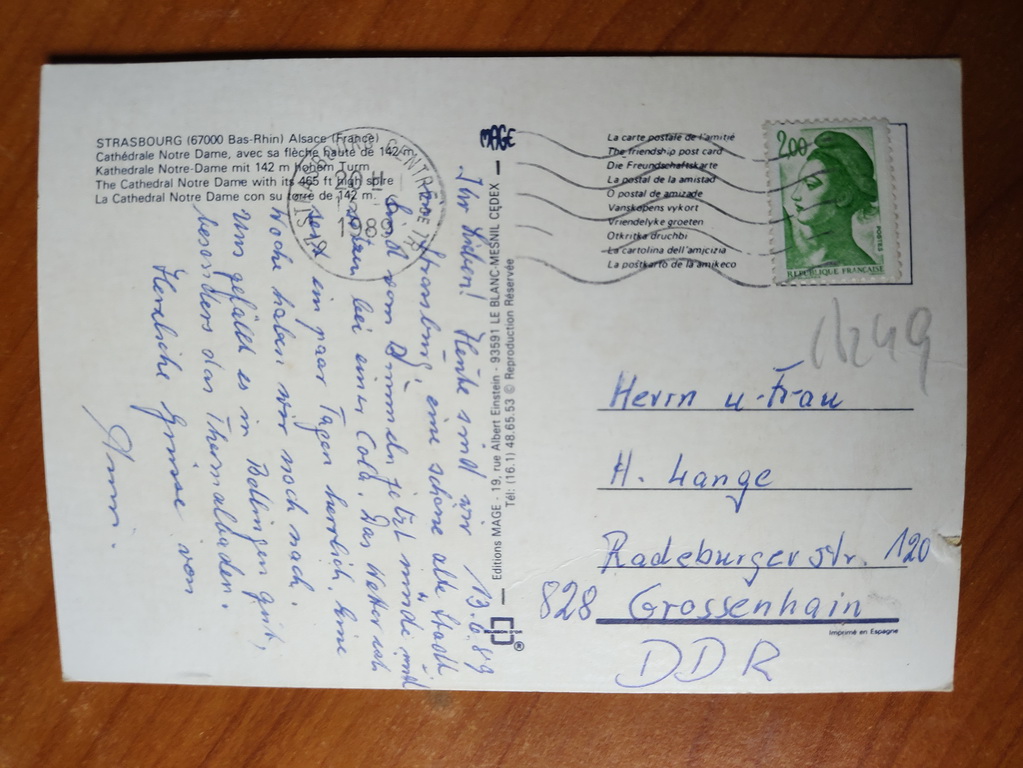 STRASBOURG (67000 Bas-Rhin) Alsace (France)
Cathédrale Notre Dame, avec sa flèche haute de 142 m.
Kathedrale Notre-Dame mit 142 m hohem Turm.
The Cathedral Notre Dame with its 465 ft high spire
La Cathedral Notre Dame con su torre de 142 m.
1989
19.6.89
Ihr Lieben! Heute sind wir
in Strassburg, eine schöne alte Stadt
sind vom jetzt müde und
bei einer Cola. Das Wetter ist
seit ein paar Tagen herrlich. Eine
Woche haben wir noch nach.
Uns gefällt es in Bellingen gut,
besonders das Thermalbaden.
Herzliche Grüsse von
Anni.
MAGE
Editions MAGE - 19, rue Albert Einstein - 93591 LE BLANC-MESNIL CEDEX
Tél: (16.1) 48.65.53 © Reproduction Réservée
®
La carte postale de l'amitié
The friendship post card
Die Freundschaftskarte
La postal de la amistad
O postal de amizade
Vanskapens vykort
Vriendelyke groeten
Otkritka druchbi
La cartolina dell'amicizia
La postkarto de la amikeco
2,00
POSTES
REPUBLIQUE FRANÇAISE
Herrn u. Frau
H. Lange
Radeburgerstr. 120
828 Grossenhain
DDR
Imprimé en Espagne